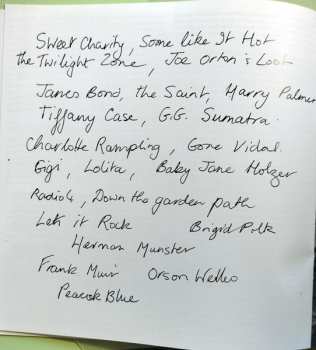 Sweet Charity, Some like It Hot
the Twilight Zone, Joe Orton's Loot
James Bond, the Saint, Harry Palmer
Tiffany Case, G.G. Sumatra.
Charlotte Rampling, Gone Vidal.
Gigi, Lolita, Baby Jane Holzer
Radio 4, Down the garden path
Let it Rock Brigid Polk
Herman Munster
Frank Muir Orson Welles
Peacock Blue